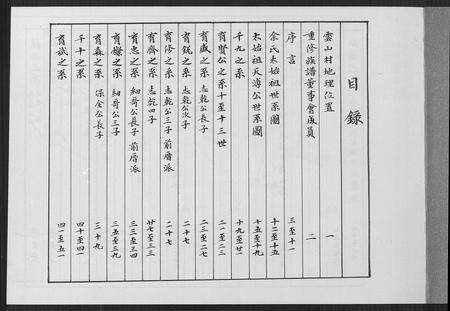 目錄
雲山村地理位置 一
重修族譜董事會成員 二
序言 三至十一
余氏太始祖世系圖 十二至十五
太始祖天溥公世系圖 十五至十九
千九之系 十九至廿一
有賢公之系十至十三世 二一至二三
有盛之系 志乾公長子 二三至二七
有銳之系 志乾公次子 二十七
有修之系 志乾公三子 前厝派 二十七
有齋之系 志乾四子 廿七至三三
有志之系 細哥公長子 前厝派 三三至三四
有聯之系 細哥公三子 三五至三九
有森之系 保全公長子 三十九
千十之系 四十至四一
有斌之系 四一至五一